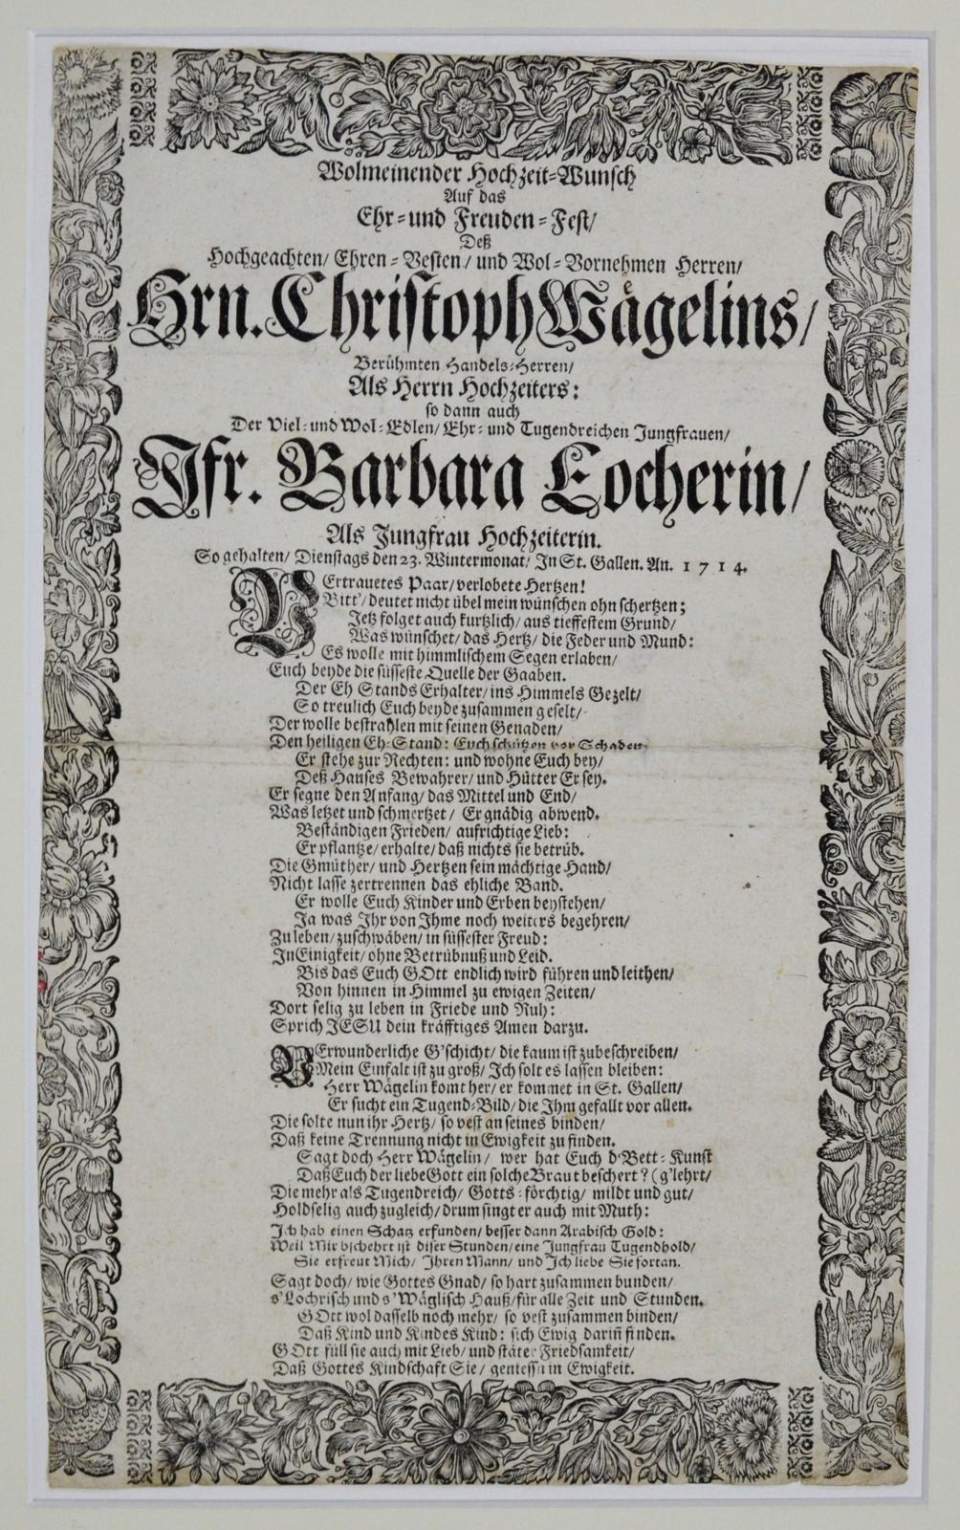 Wolmeinender Hochzeit-Wunsch
Auf das
Ehr-und Freuden-Fest/
Deß
Hochgeachten/ Ehren-Vesten/ und Wol-Vornehmen Herren/
Hrn. Christoph Wägelins/
Berühmten Handels-Herren/
Als Herrn Hochzeiters:
so dann auch
Der Viel-und Wol-Edlen/ Ehr- und Tugendreichen Jungfrauen/
Jfr. Barbara Locherin/
Als Jungfrau Hochzeiterin.
So gehalten/ Dienstags den 23. Wintermonat/ In St. Gallen. An. 1714.
VErtrauetes Paar/ verlobete Hertzen!
Bitt'/ deutet nicht übel mein wünschen ohn schertzen;
Jetz folget auch kurtzlich/ aus tieffestem Grund/
Was wünschet/ das Hertz/ die Feder und Mund:
Es wolle mit himmlischem Segen erlaben/
Euch beyde die süsseste Quelle der Gaaben.
Der Eh Stands Erhalter/ ins Himmels Gezelt/
So treulich Euch beyde zusammen geselt/
Der wolle bestrahlen mit seinen Genaden/
Den heiligen Eh-Stand: Euch schützen vor Schaden.
Er stehe zur Rechten: und wohne Euch bey/
Deß Hauses Bewahrer/ und Hütter Er sey.
Er segne den Anfang/ das Mittel und End/
Was letzet und schmertzet/ Er gnädig abwend.
Beständigen Frieden/ aufrichtige Lieb:
Er pflantze/ erhalte/ daß nichts sie betrüb.
Die Gmüther/ und Hertzen sein mächtige Hand/
Nicht lasse zertrennen das ehliche Band.
Er wolle Euch Kinder und Erben beystehen/
Ja was Ihr von Ihme noch weiters begehren/
Zu leben/ zuschwäben/ in süssester Freud:
In Einigkeit/ ohne Betrübnuß und Leid.
Bis das Euch GOtt endlich wird führen und leithen/
Von hinnen in Himmel zu ewigen Zeiten/
Dort selig zu leben in Friede und Ruh:
Sprich JESU dein kräfftiges Amen darzu.
VErwunderliche G'schicht/ die kaum ist zubeschreiben/
Mein Einfalt ist zu groß/ Ich solt es lassen bleiben:
Herr Wägelin komt her/ er kommet in St. Gallen/
Er sucht ein Tugend-Bild/ die Ihm gefallt vor allen.
Die solte nun ihr Hertz/ so vest an seines binden/
Daß keine Trennung nicht in Ewigkeit zu finden.
Sagt doch Herr Wägelin/ wer hat Euch d'Bett-Kunst
Daß Euch der liebe Gott ein solche Braut beschert? (g'lehrt/
Die mehr als Tugendreich/ Gotts-förchtig/ mildt und gut/
Holdselig auch zugleich/ drum singt er auch mit Muth:
Ich hab einen Schatz erfunden/ besser dann Arabisch Gold:
Weil Mir bschehrt ist diser Stunden/ eine Jungfrau Tugendhold/
Sie erfreut Mich/ Ihren Mann/ und Ich liebe Sie fortan.
Sagt doch/ wie Gottes Gnad/ so hart zusammen bunden/
s'Lochrisch und s'Wäglisch Hauß/ für alle Zeit und Stunden.
GOtt wol dasselb noch mehr/ so vest zusammen binden/
Daß Kind und Kindes Kind: sich Ewig darin finden.
GOtt füll sie auch mit Lieb/ und stäter Friedsamkeit/
Daß Gottes Kindschaft Sie/ geniessen in Ewigkeit.